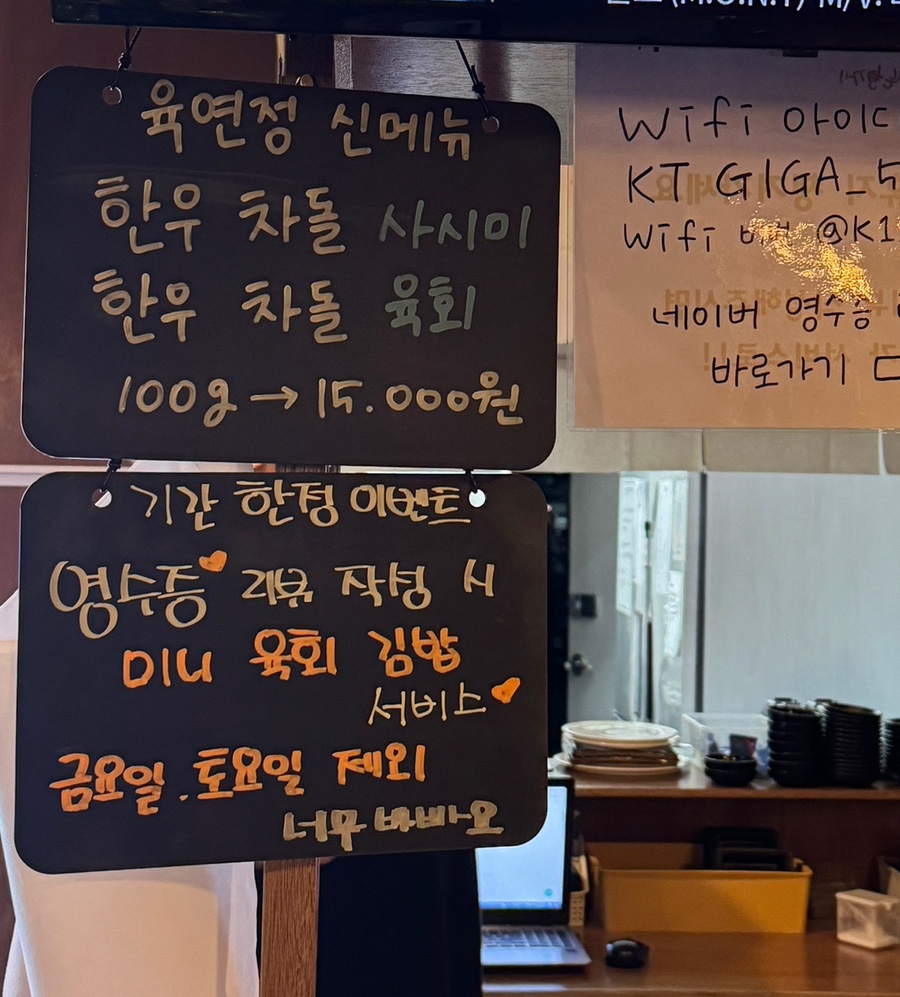 육연정 신메뉴
한우 차돌 사시미
한우 차돌 육회
100g → 15.000원
기간 한정 이벤트
영수증 리뷰 작성 시
미니 육회 김밥
서비스
금요일.토요일 제외
너무 바빠요
Wifi 아이디
KT GIGA_5
Wifi 비번 @K1
네이버 영수증
바로가기